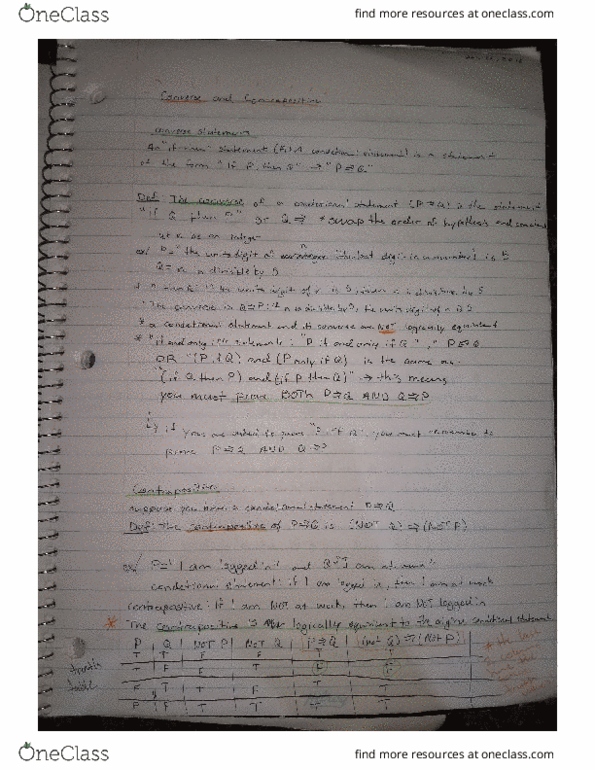 OneClass
find more resources at oneclass.com
Converse and Contrapositive
converse statement
An "if-then" statement (or a conditional statement) is a statement
of the form "If P, then Q" → "P⇒Q."
Def: The converse of a conditional statement (P⇒Q) is the statement
"if Q then P" or Q⇒P *swap the order of hypothesis and
let n be an integer
ex/ P="the units digit of is 5
Q= n is divisible by 5
the units digit of n is 5, then n is divisible by 5
The converse is Q⇒P: if n is divisible by 5, the units digit of n is
* a conditional statement and its converse are NOT logically equivalent
* "if and only if" statements: "P if and only if Q", P⇔Q
OR "(P if Q) and (P only if Q) is the same as
"(if Q then P) and (if P then Q)" → this means
you must prove BOTH P⇒Q AND Q⇒P
↳ if you are asked to prove "P iff Q", you must remember to
prove P⇒Q AND Q⇒P
Contrapositive
suppose you have a conditional statement P⇒Q
Def: The contrapositive of P⇒Q is (NOT Q) ⇒ (NOT P)
ex/ P="I am logged in" and Q="I am at work"
conditional statement: if I am logged in, then I am at work
contrapositive: If I am NOT at work, then I am NOT logged in
* The contrapositive is logically equivalent to the original conditional statement
P | Q | NOT P | NOT Q | P⇒Q | (not Q)⇒(Not P)
T T F F T T
truth T F F T F F
table F T T F T T
F F T T T T
OneClass
find more resources at oneclass.com